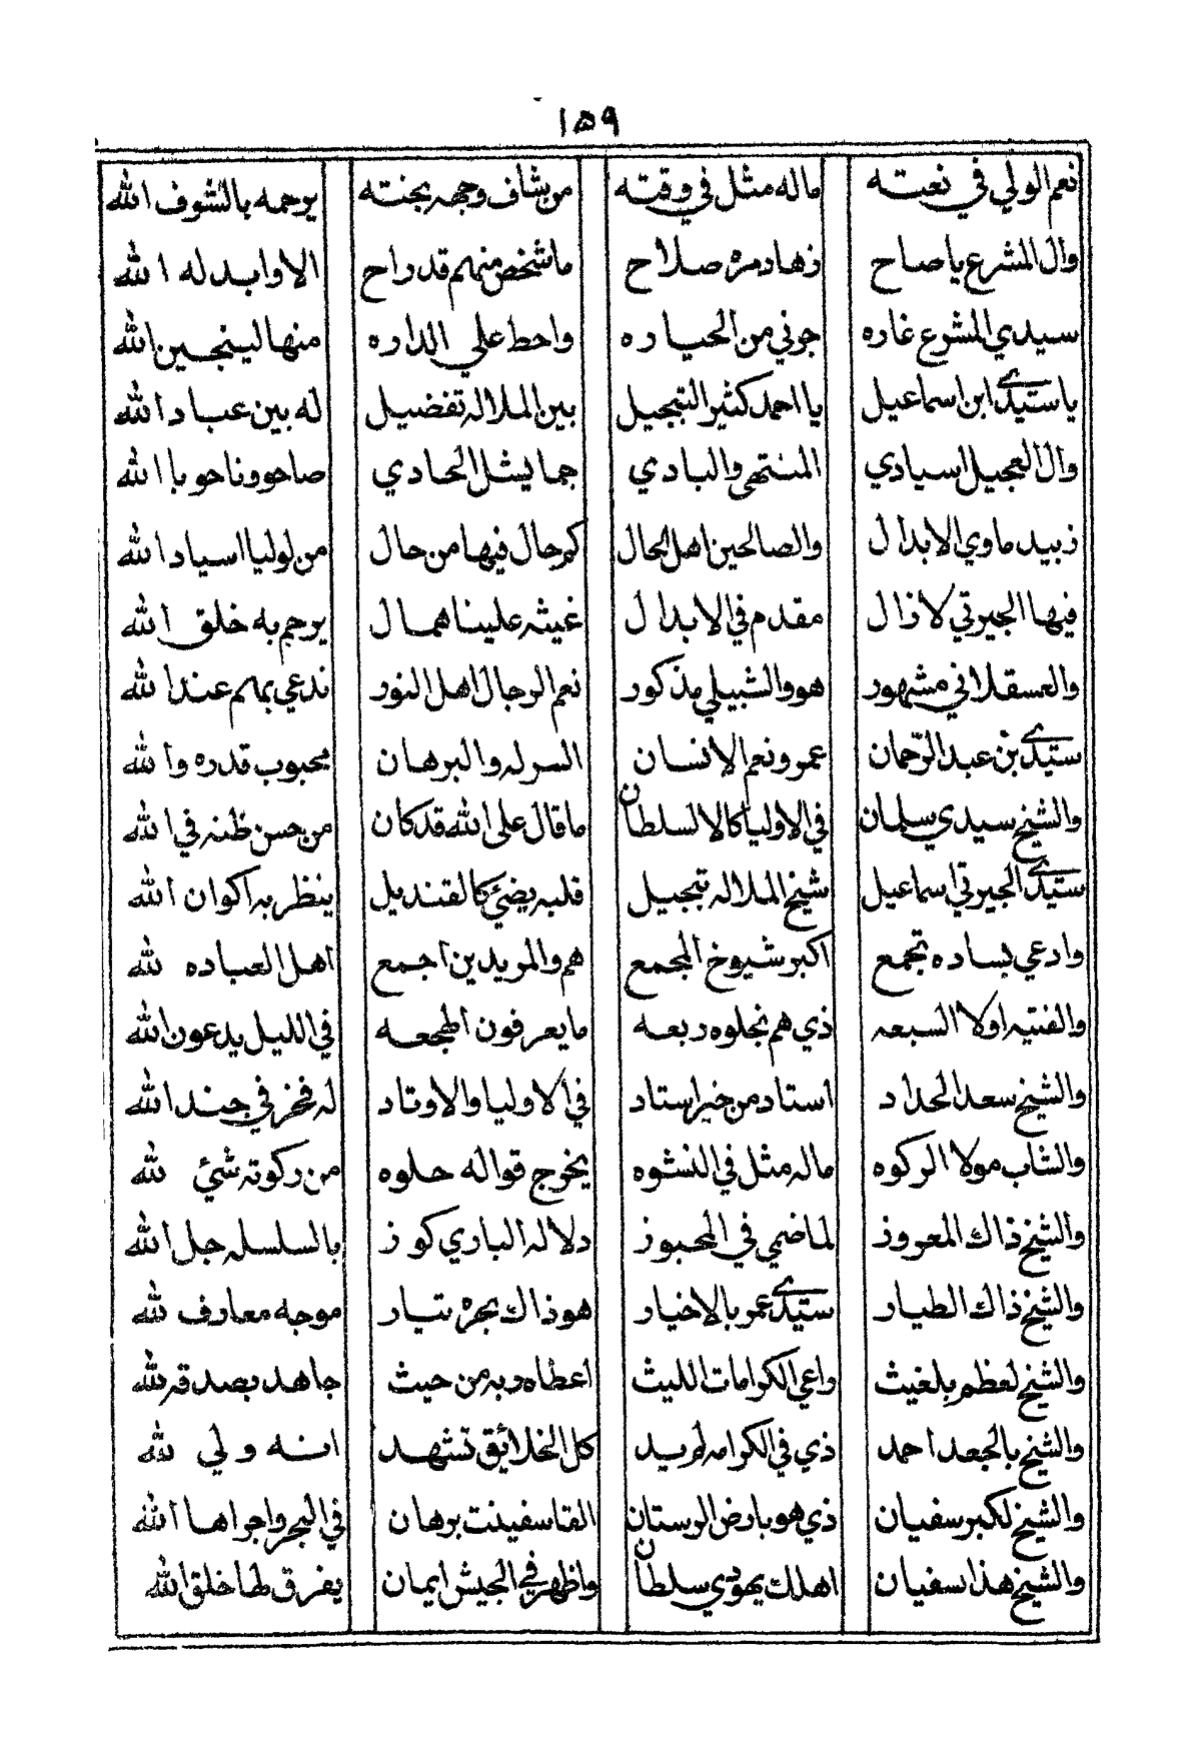 ١٥٩
نعم الولي في نعته ماله مثل في وقته من شاف وجهه بجنته يرحمه بالشوف الله
وال المشرع ياصاح زهاد مره صلاح ماشخص منهم قدراح الا وابدله الله
سيدي المشرع غاره جوني من الحياره واحط علي الداره منها لينجين الله
ياسيدي ابن اسماعيل يا احمد كثير التبجيل بين الملاله تفضيل له بين عباد الله
وال العجيل اسيادي المنتهى والبادي جما يشل الحادي صاحوو ناحو با الله
زبيد ماوي الابدال والصالحين اهل الحال كم حال فيها من حال من لوليا اسياد الله
فيها الجبرتي لازال مقدم في الابدال غيثه علينا همال يرحم به خلق الله
والعسقلاني مشهور هووالشبيلي مذكور نعم الرجال اهل النور ندعي بهم عند الله
سيدي بن عبد الرحمان عمر ونعم الانسان السر له والبرهان محبوب قدره والله
والشيخ سيدي سلمان في الاوليا كالالسلطان ماقال على الله قدكان من حسن ظنه في الله
سيدي الجبرتي اسماعيل شيخ الملاله تبجيل قلبه يضئ كالقنديل ينظر به اكوان الله
وادعي بساده تجمع اكبر شيوخ المجمع هم والمريدين اجمع اهل العباده لله
والفتيه اولا السبعه ذي هم بخلوه ربعه مايعرفون الهجعه في الليل يدعون الله
والشيخ سعد الحداد استاد من خير استاد في الاوليا والاوتاد له فخز في جند الله
والشاب مولا الركوه ماله مثل في النشوه يخرج قواله حلوه من ركوته شئ لله
والشيخ ذاك المعروز لماضي في المحبوز دلاله الباري كوز بالسلسله جل الله
والشيخ ذاك الطيار سيدي عمر بالاخيار هوذاك بحره تيار موجه معارف لله
والشيخ لعظم بلغيث واعي الكرامات الليث اعطاه ربه من حيث جاهد بصدقه لله
والشيخ بالجعد احمد ذي في الكرامه لمريد كل الخلائق تشهد انه ولي لله
والشيخ لكبر سفيان ذي هو بارض الرستان القا سفينت برهان في البحر واجراها الله
والشيخ هذا سفيان اهلك يهودي سلطان واظهر في الجيش ايمان يفرق لها خلق الله